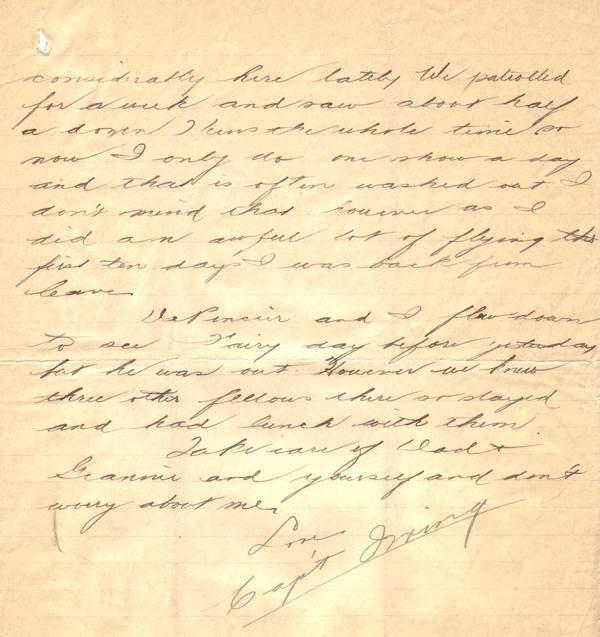 considerably here lately. We patrolled
for a week and saw about half
a dozen Huns the whole time so
now I only do one show a day
and that is often washed out I
don't mind that however as I
did an awful lot of flying the
first ten days I was back from
leave.
DePencier and I flew down
to see Fairy day before yesterday
but he was out. However we knew
three other fellows there so stayed
and had lunch with them
Take care of Dad +
Grannie and yourself and don't
worry about me.
Love
Cap't Irving